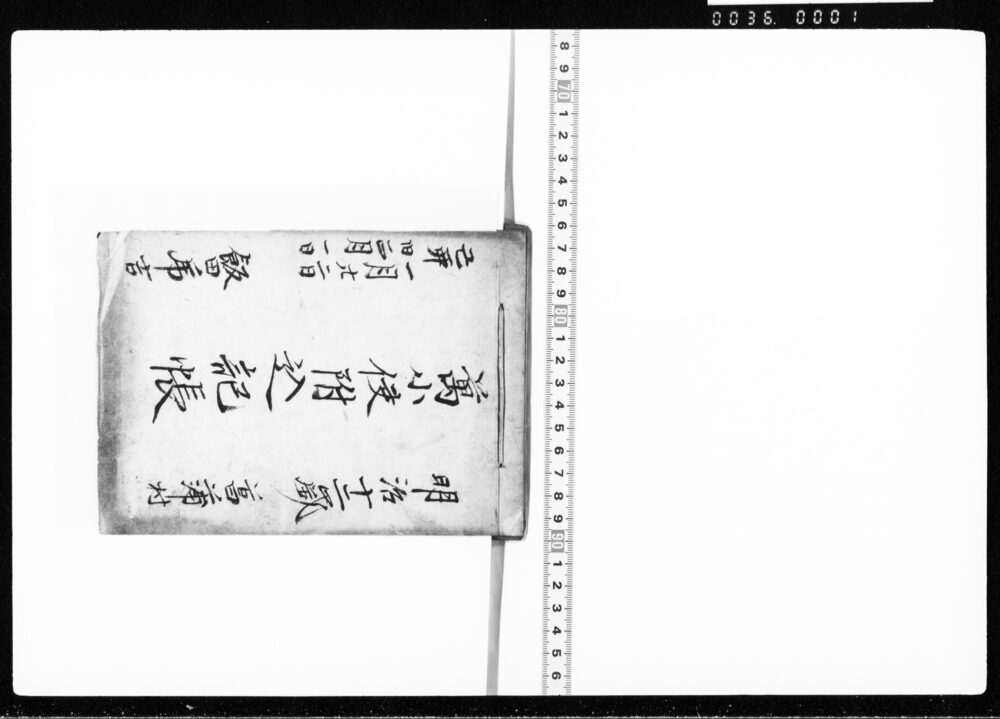 明治十二歳 高浦村
萬小使附込記帳
己卯
一月廿二日
旧正月一日
吉
0036.0001
8 9 70 1 2 3 4 5 6 7 8 9 80 1 2 3 4 5 6 7 8 9 90 1 2 3 4 5 6